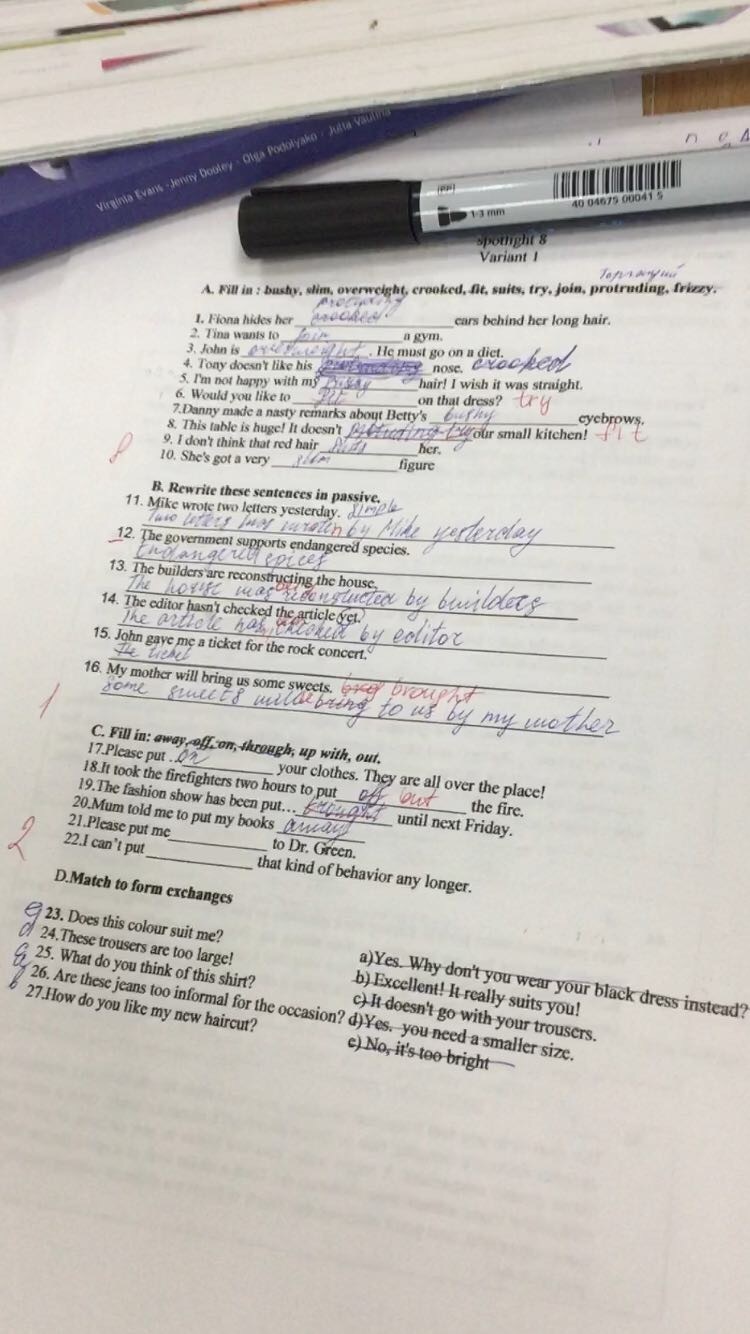 Virginia Evans - Jenny Dooley - Olga Podolyako - Julia Vaulina
(PP)
1-3 mm
40 04675 00041 5
spotlight 8
Variant 1
A. Fill in : bushy, slim, overweight, crooked, fit, suits, try, join, protruding, frizzy.
protruding
1. Fiona hides her crooked ears behind her long hair.
2. Tina wants to join a gym.
3. John is overweight. He must go on a diet.
4. Tony doesn't like his nose. crooked
5. I'm not happy with my hair! I wish it was straight.
6. Would you like to fit on that dress? try
7.Danny made a nasty remarks about Betty's bushy eyebrows.
8. This table is huge! It doesn't our small kitchen! fit
9. I don't think that red hair suits her.
8
10. She's got a very slim figure
B. Rewrite these sentences in passive.
11. Mike wrote two letters yesterday. simple
Two letters was written by Mike yesterday
12. The government supports endangered species.
Endangered spices
13. The builders are reconstructing the house.
The house was reconstructed by builders
14. The editor hasn't checked the article yet.
The article has checked by editor
15. John gave me a ticket for the rock concert.
The ticket
16. My mother will bring us some sweets. brought
some sweets will be bring to us by my mother
1
C. Fill in: away, off, on, through, up with, out.
17.Please put .. on your clothes. They are all over the place!
18.It took the firefighters two hours to put off out the fire.
19.The fashion show has been put... until next Friday.
20.Mum told me to put my books away
21.Please put me to Dr. Green.
2
22.I can't put that kind of behavior any longer.
D.Match to form exchanges
23. Does this colour suit me?
24.These trousers are too large!
25. What do you think of this shirt?
26. Are these jeans too informal for the occasion?
27.How do you like my new haircut?
a)Yes. Why don't you wear your black dress instead?
b) Excellent! It really suits you!
c) It doesn't go with your trousers.
d)Yes. you need a smaller size.
e) No, it's too bright